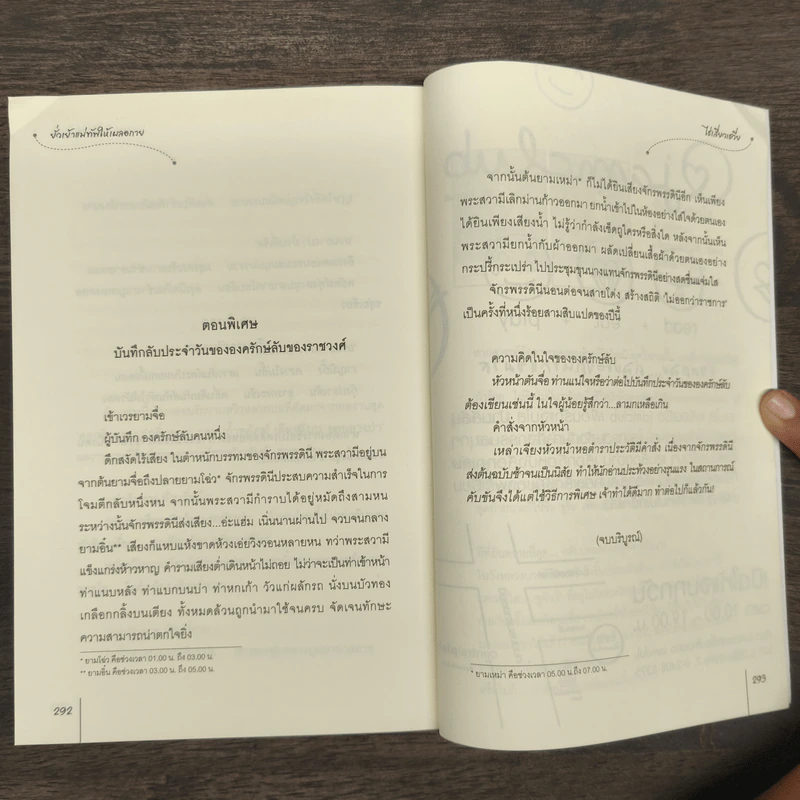 ยั่วเย้าแม่ทัพให้เผลอกาย
ตอนพิเศษ
บันทึกลับประจำวันขององครักษ์ลับของราชวงศ์
เข้าเวรยามจื่อ
ผู้บันทึก องครักษ์ลับคนหนึ่ง
ดึกสงัดไร้เสียง ในตำหนักบรรทมของจักรพรรดินี พระสวามีอยู่บน
จากต้นยามจื่อถึงปลายยามโฉ่ว* จักรพรรดินีประสบความสำเร็จในการ
โจมตีกลับหนึ่งหน จากนั้นพระสวามีกำราบได้อยู่หมัดถึงสามหน
ระหว่างนั้นจักรพรรดินีส่งเสียง...อ่ะแฮ่ม เนิ่นนานผ่านไป จวบจนกลาง
ยามอิ๋น** เสียงก็แหบแห้งขาดห้วงเอ่ยวิงวอนหลายหน ทว่าพระสวามี
แข็งแกร่งห้าวหาญ คำรามเสียงต่ำเดินหน้าไม่ถอย ไม่ว่าจะเป็นท่าเข้าหน้า
ท่าแนบหลัง ท่าแบกบนบ่า ท่าหกเก้า วัวแก่ผลักรถ นั่งบนบัวทอง
เกลือกกลิ้งบนเตียง ทั้งหมดล้วนถูกนำมาใช้จนครบ จัดเจนทักษะ
ความสามารถน่าตกใจยิ่ง
* ยามโฉ่ว คือช่วงเวลา 01.00 น. ถึง 03.00 น.
** ยามอิ๋น คือช่วงเวลา 03.00 น. ถึง 05.00 น.
292
จากนั้นต้นยามเหม่า* ก็ไม่ได้ยินเสียงจักรพรรดินีอีก เห็นเพียง
พระสวามีเลิกม่านก้าวออกมา ยกน้ำเข้าไปในห้องอย่างใส่ใจด้วยตนเอง
ได้ยินเพียงเสียงน้ำ ไม่รู้ว่ากำลังเช็ดถูใครหรือสิ่งใด หลังจากนั้นเห็น
พระสวามียกน้ำกับผ้าออกมา ผลัดเปลี่ยนเสื้อผ้าด้วยตนเองอย่าง
กระปรี้กระเปร่า ไปประชุมขุนนางแทนจักรพรรดินีอย่างสดชื่นแจ่มใส
จักรพรรดินีนอนต่อจนสายโด่ง สร้างสถิติ 'ไม่ออกว่าราชการ'
เป็นครั้งที่หนึ่งร้อยสามสิบแปดของปีนี้
ความคิดในใจขององครักษ์ลับ
หัวหน้าต้นจื่อ ท่านแน่ใจหรือว่าต่อไปบันทึกประจำวันขององครักษ์ลับ
ต้องเขียนเช่นนี้ ในใจผู้น้อยรู้สึกว่า...ลามกเหลือเกิน
คำสั่งจากหัวหน้า
เหล่าเจียงหัวหน้าหอตำราประวัติมีคำสั่ง เนื่องจากจักรพรรดินี
ส่งต้นฉบับช้าจนเป็นนิสัย ทำให้นักอ่านประท้วงอย่างรุนแรง ในสถานการณ์
คับขันจึงได้แต่ใช้วิธีการพิเศษ เจ้าทำได้ดีมาก ทำต่อไปก็แล้วกัน!
(จบบริบูรณ์)
* ยามเหม่า คือช่วงเวลา 05.00 น.ถึง 07.00 น.
293